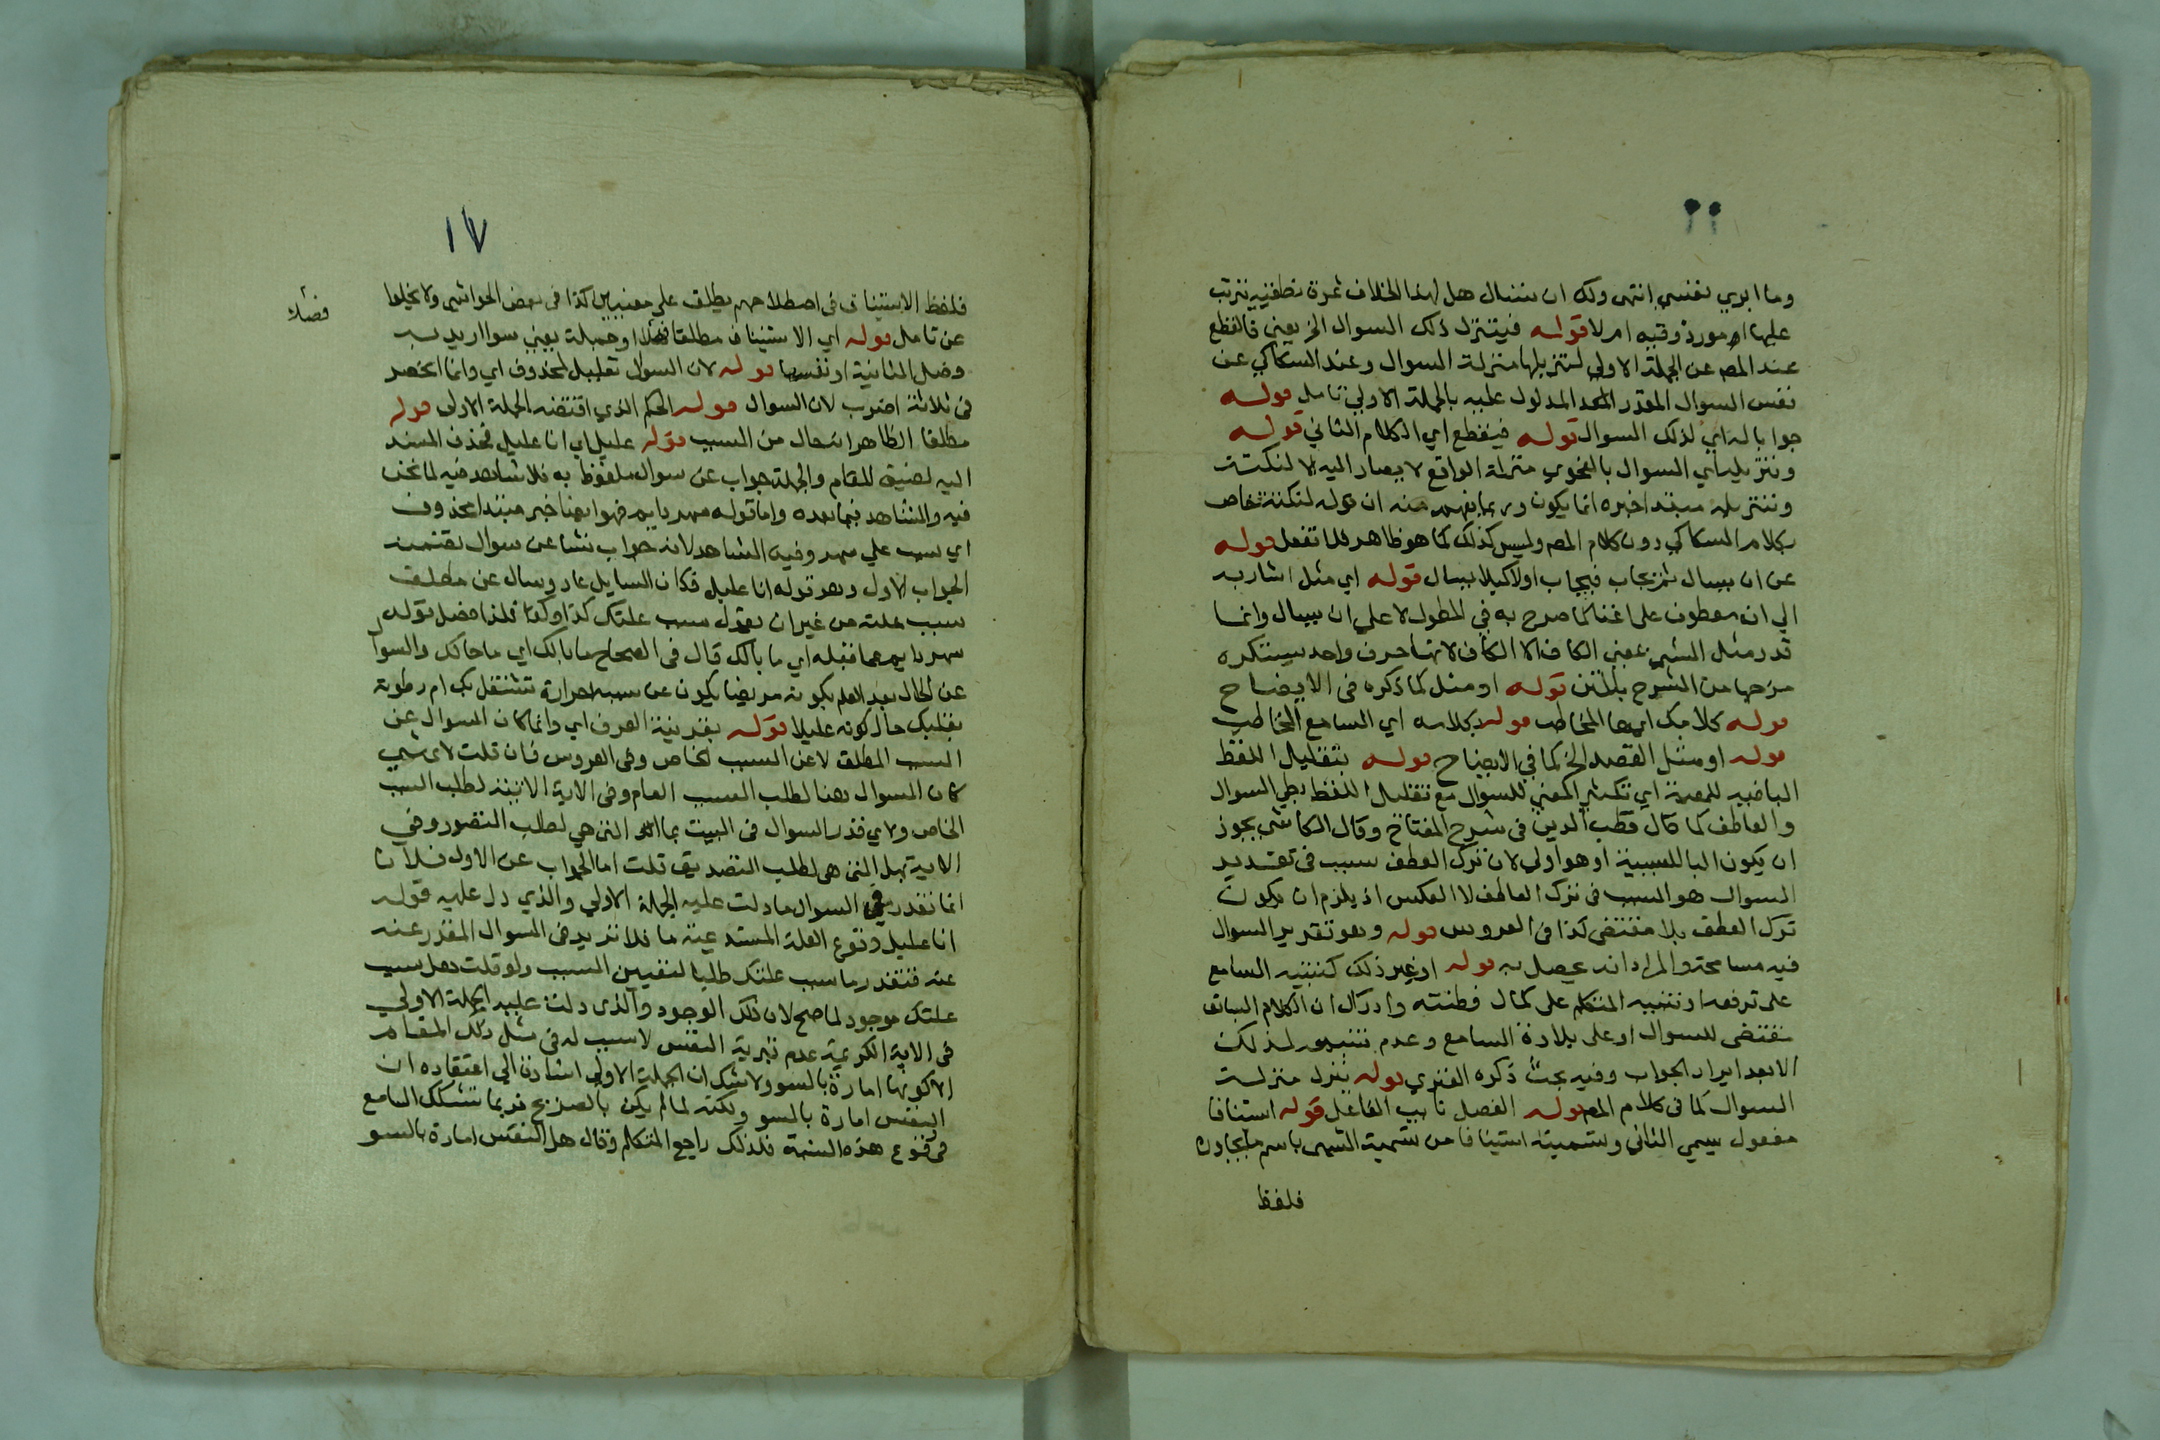 وما ابري نفسي انتهى ولك ان تسال هل لهذا الخلاف ثمرة تترتب
عليها ام لا قوله فينزل ذلك السوال الخ يعني فالقطع
عند المص عن الجملة الاولي لتنزيلها منزلة السوال وعند السكاكي عن
نفس السوال المقدر المدلول عليه بالجملة الاولي تامل قوله
جوابا له اي لذلك السوال قوله فيقطع اي الكلام الثاني قوله
وتنزيله اي السوال بالفحوي منزلة الواقع لا يصار اليه الا لنكتة
وتنزيله مبتدا خبره انما يكون وربما يفهم منه ان قوله لنكتة خاص
بكلام السكاكي دون كلام المص وليس كذلك كما هو ظاهر فلا تغفل قوله
عن ان يسال ثم يجاب فيجاب اولا كيلا يسال قوله اي مثل اشار به
الي انه معطوف على اغنا كما صرح به في المطول لا علي ان يسال وانما
قدر مثل الشي الكاف لانها حرف واحد يستكره
مزجها من الشرح بالمتن قوله او مثل كما ذكره في الايضاح
قوله كلامك ايها المخاطب قوله بكلامه اي السامع المخاطب
قوله او مثل القصد الخ كما في الايضاح قوله بتقليل اللفظ
البا فيه للمعية اي تكثير المعني للسوال مع تقليل اللفظ بطي السوال
والعاطف كما قال قطب الدين في شرح المفتاح وقال الكاشي يجوز
ان يكون البا للسببية او هو اولي لان ترك العطف سبب في تقدير
السوال هو السبب في ترك العاطف لا العكس اذ يلزم ان يكون
ترك العطف بلا مقتضى كذا في العروس قوله وهو تقدير السوال
فيه مسامحة والمراد انه يحصل به قوله او غير ذلك كتنبيه السامع
على او تنبيه المتكلم على كمال فطنته وادراك ان الكلام السابق
مقتضى للسوال او على بلادة السامع وعدم لذلك
الا بعد ايراد الجواب وفيه بحث ذكره الفنري قوله ينزل منزلة
السوال كما في كلام المص قوله الفصل نايب الفاعل قوله استنافا
مفعول يسمي الثاني وتسميته استينافا من تسمية الشي باسم
فلفظ
١٧
فلفظ الاستيناف في اصطلاحهم يطلق علي معنيين كذا في بعض الحواشي ولا
عن تامل قوله اي الاستيناف مطلقا فصلا او جملة يعني سوا اريد به
فصل الثانية او نفسها قوله لان السوال تعليل لمحذوف اي وانما انحصر
في ثلاثة اضرب لان السوال قوله الحكم الذي اقتضته الجملة الاولى قوله
مطلقا الظاهر انه حال من السبب قوله عليل اي انا عليل فحذف المسند
اليه لضيق المقام والجملة جواب عن سوال ملفوظ به فلا شاهد فيه لما نحن
فيه والشاهد فيما بعده واما قوله سهر دايم فهو ايضا خبر مبتدا محذوف
اي سبب علي سهر وفيه الشاهد لانه جواب نشا عن سوال تضمنه
الجواب الاول وهو قوله انا عليل فكان السايل عاد وسال عن مطلق
سبب علته من غير ان يقول سبب علتك كذا وكذا فلذا فصل قوله
سهر دايم عما قبله اي ما بالك قال في الصحاح ما بالك اي ما حالك والسوال
عن الحال بعد العلم بكونه مريضا يكون عن سبب
حال كونه عليلا قوله بقرينة العرف اي وانما كان السوال عن
السبب المطلق لا عن السبب الخاص وفي العروس فان قلت لاي شي
كان السوال هنا لطلب السبب العام وفي الاية الاتية لطلب السبب
الخاص ولاي قدر السوال في البيت بما التي هي لطلب التصور وفي
الاية بهل التي هي لطلب التصديق قلت اما الجواب عن الاول فلانا
انما نقدر في السوال ما دلت عليه الجملة الاولي والذي دل عليه قوله
انا عليل وقوع العلة المستدعية ما فلا نزيد في السوال المقدر عنه
عنه فنقدر ما سبب علتك طلبا لتعيين السبب ولو قلت هل سبب
علتك موجود لما صح لان ذلك الوجود والذي دلت عليه الجملة الاولي
في الاية الكريمة عدم تبرية النفس لا سبب له في مثل ذلك المقام
الا كونها امارة بالسو ولا شك ان الجملة الاولى اشارة الي اعتقاده ان
النفس امارة بالسو ولكنه لما لم يكن بالصريح فربما تشكك السامع
في وقوع هذه فلذلك راجع المتكلم وقال هل النفس امارة بالسو
فصلا